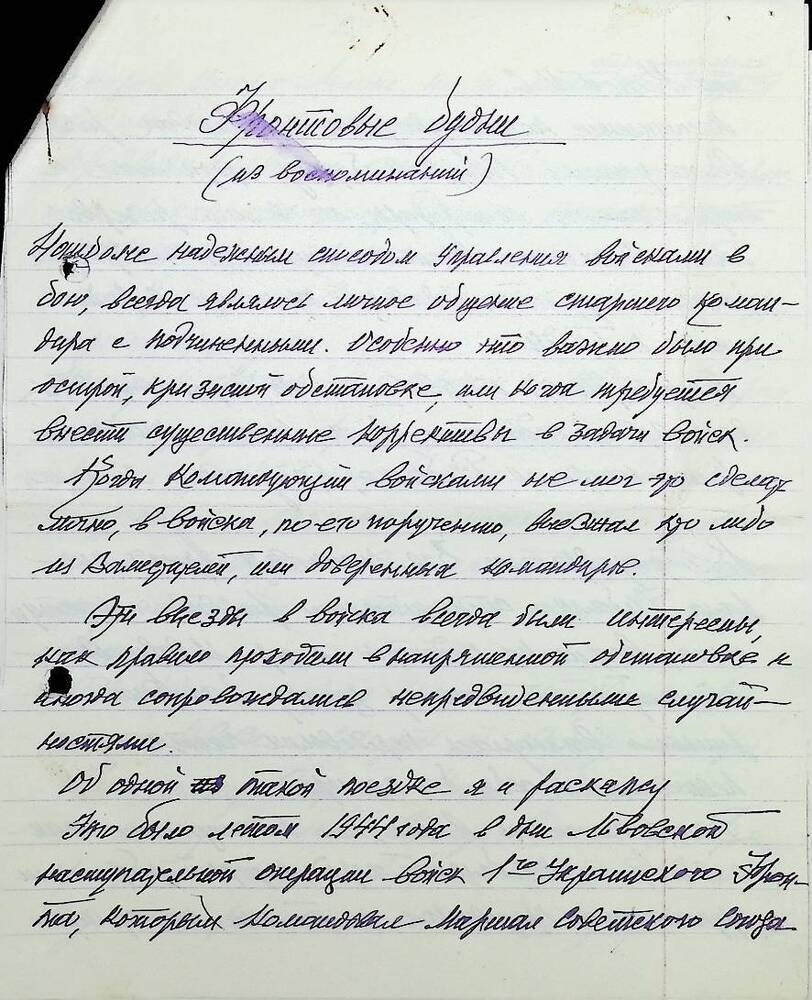 Фронтовые будни
(из воспоминаний)
Наиболее надежным способом управления войсками в
бою, всегда являлось личное общение старшего коман-
дира с подчиненными. Особенно это важно было при
острой, кризисной обстановке, или когда требуется
внести существенные коррективы в задачи войск.
Когда Командующий войсками не мог это сделать
лично, в войска, по его поручению, выезжал кто либо
из Заместителей, или доверенных командиров.
Эти выезды в войска всегда были интересны,
как правило проходили в напряженной обстановке и
иногда сопровождались непредвиденными случай-
ностями.
Об одной такой поездке я и раскажу
Это было летом 1944 года в дни Львовской
наступательной операции войск 1го Украинского Фрон-
та, которым командовал Маршал Советского Союза